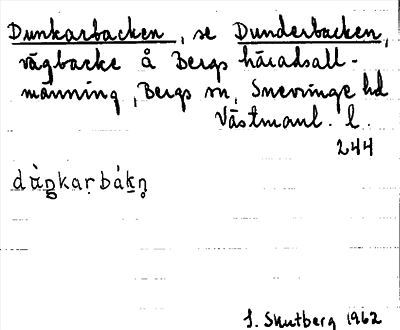 Dunkarbacken, se Dunderbacken,
vägbacke å Bergs häradsall-
männing, Bergs sn, Snevringe hd
Västmanl. l.
244
dὰŋkaṛbákṇ
S. Skutberg 1962